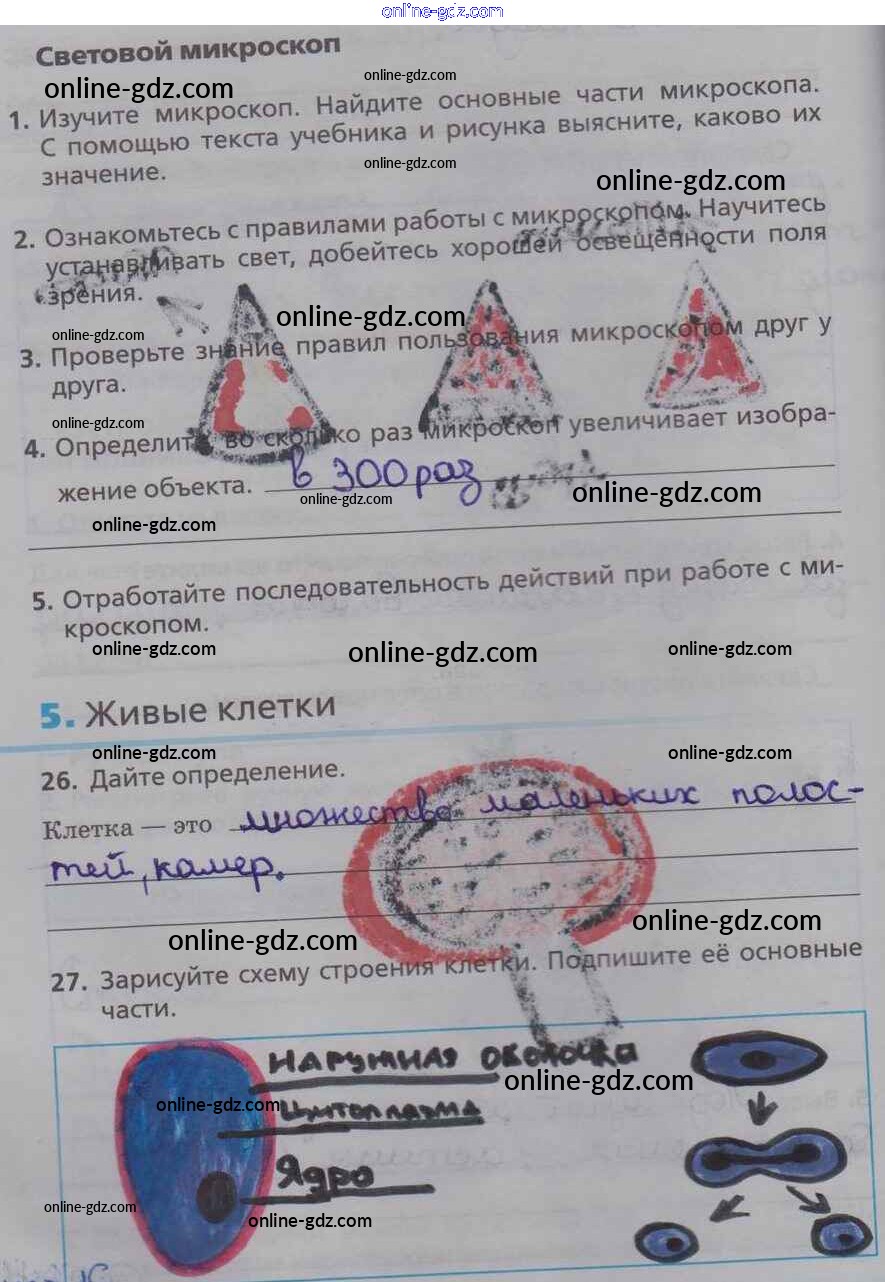 online-gdz.com
Световой микроскоп
online-gdz.com
online-gdz.com
1. Изучите микроскоп. Найдите основные части микроскопа.
С помощью текста учебника и рисунка выясните, каково их
значение.
online-gdz.com
online-gdz.com
2. Ознакомьтесь с правилами работы с микроскопом. Научитесь
устанавливать свет, добейтесь хорошей освещённости поля
зрения.
online-gdz.com
online-gdz.com
3. Проверьте знание правил пользования микроскопом друг у
друга.
online-gdz.com
4. Определите, во сколько раз микроскоп увеличивает изобра-
жение объекта. в 300 раз
online-gdz.com
online-gdz.com
online-gdz.com
5. Отработайте последовательность действий при работе с ми-
кроскопом.
online-gdz.com
online-gdz.com
online-gdz.com
5. Живые клетки
online-gdz.com
online-gdz.com
26. Дайте определение.
Клетка — это множество маленьких полос-
тей, камер.
online-gdz.com
online-gdz.com
27. Зарисуйте схему строения клетки. Подпишите её основные
части.
НАРУЖНАЯ ОБОЛОЧКА
online-gdz.com
online-gdz.com
Цитоплазма
Ядро
online-gdz.com
online-gdz.com